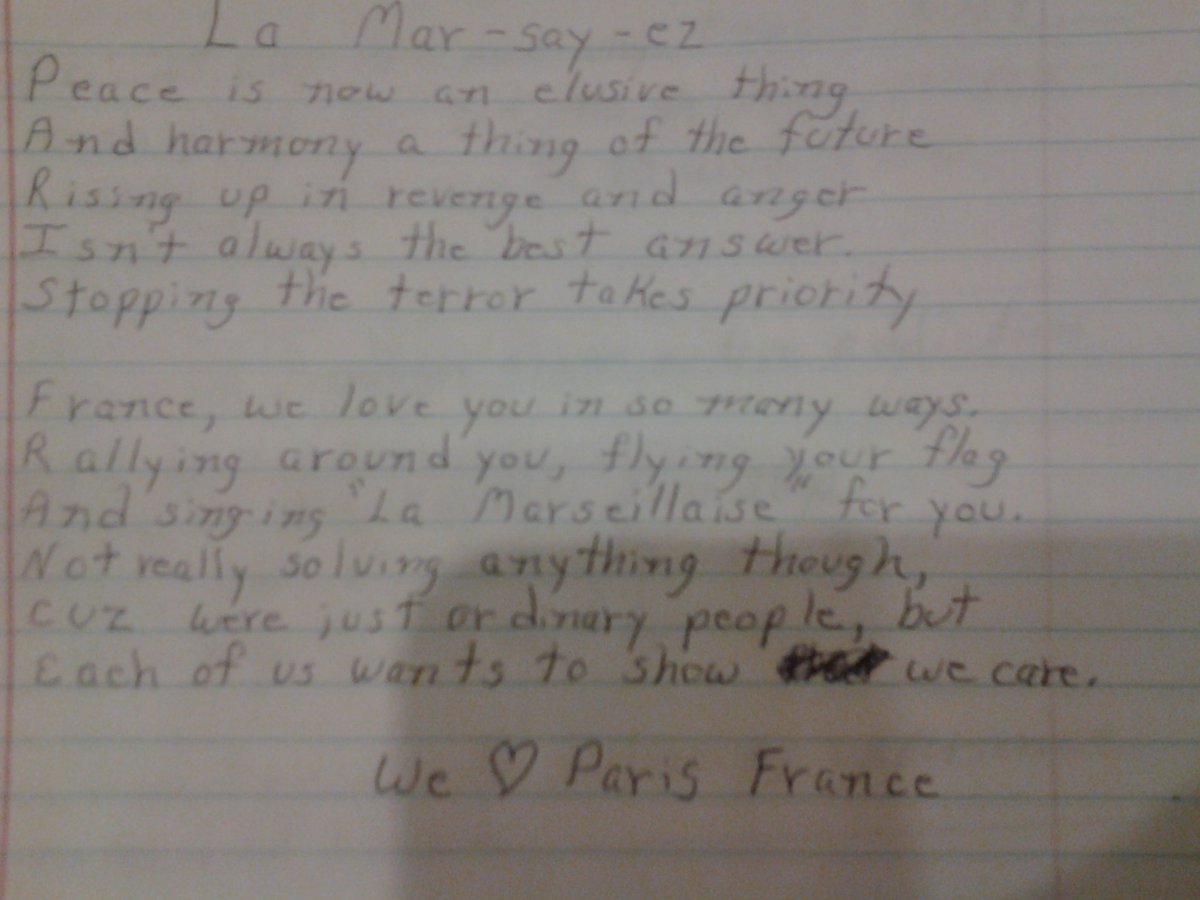 La Mar-say-ez
Peace is now an elusive thing
And harmony a thing of the future
Rising up in revenge and anger
Isn't always the best answer.
Stopping the terror takes priority
France, we love you in so many ways.
Rallying around you, flying your flag
And singing "La Marseillaise" for you.
Not really solving anything though,
cuz were just ordinary people, but
Each of us wants to show we care.
We ♡ Paris France